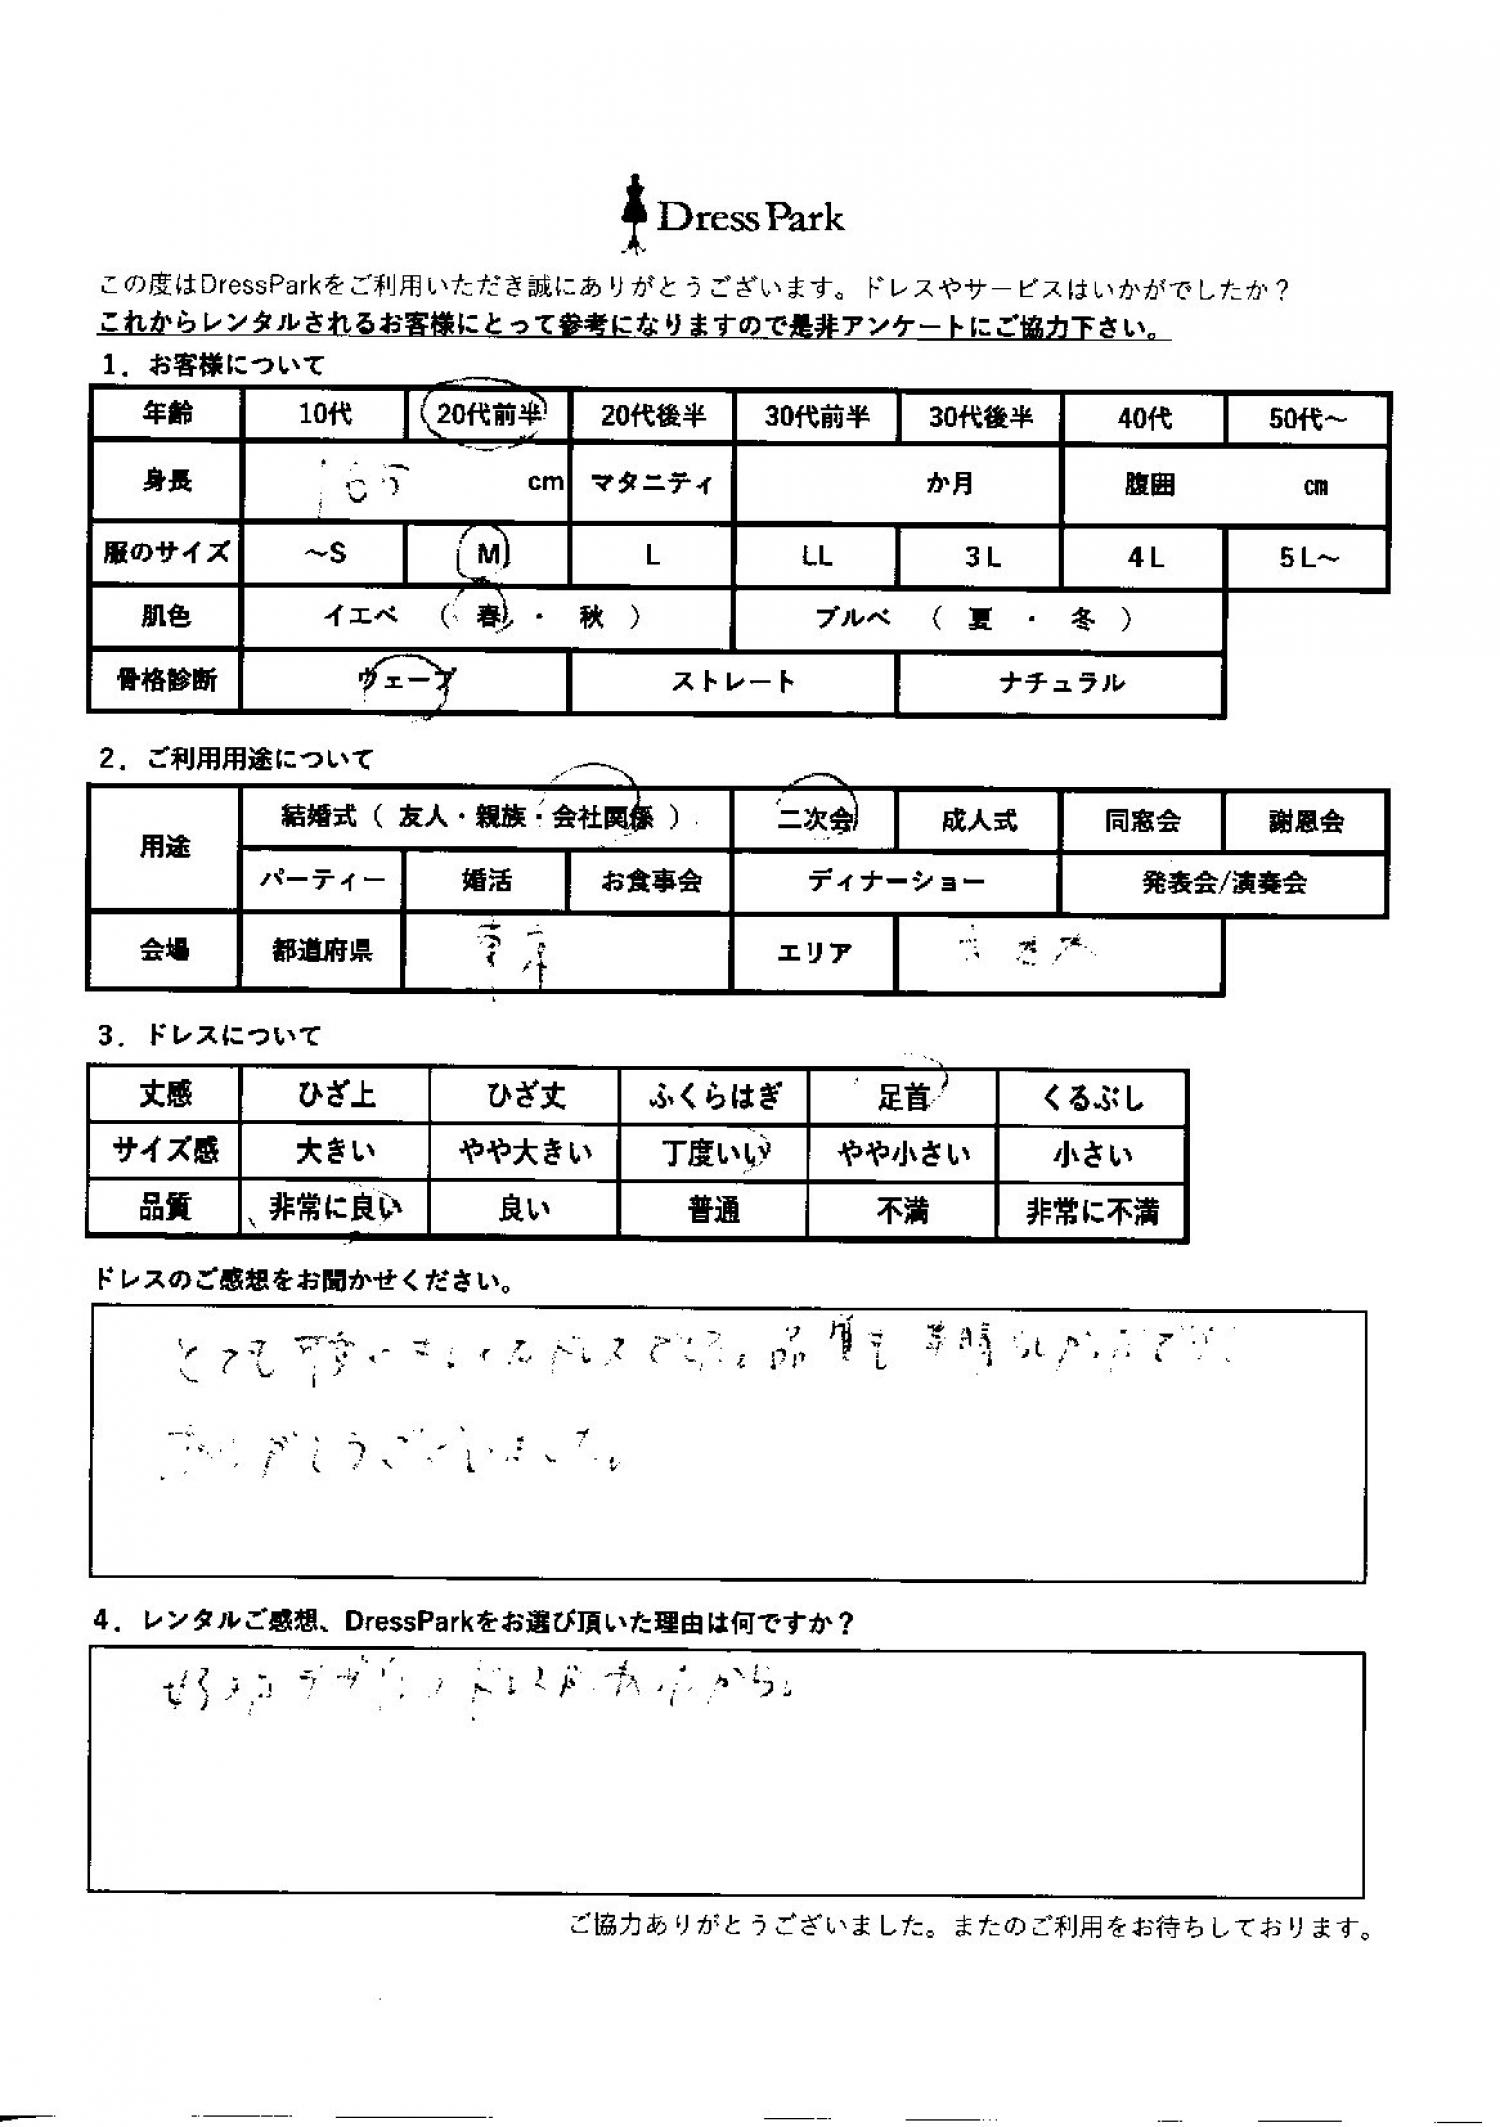 Dress Park
この度はDressParkをご利用いただき誠にありがとうございます。ドレスやサービスはいかがでしたか？
これからレンタルされるお客様にとって参考になりますので是非アンケートにご協力下さい。
1．お客様について
年齢 10代 20代前半 20代後半 30代前半 30代後半 40代 50代～
身長 165 cm マタニティ か月 腹囲 cm
服のサイズ ～S M L LL 3L 4L 5L～
肌色 イエベ （ 春 ・ 秋 ） ブルベ （ 夏 ・ 冬 ）
骨格診断 ウェーブ ストレート ナチュラル
2．ご利用用途について
用途 結婚式（ 友人・親族・会社関係 ） 二次会 成人式 同窓会 謝恩会
パーティー 婚活 お食事会 ディナーショー 発表会/演奏会
会場 都道府県 東京 エリア
3．ドレスについて
丈感 ひざ上 ひざ丈 ふくらはぎ 足首 くるぶし
サイズ感 大きい やや大きい 丁度いい やや小さい 小さい
品質 非常に良い 良い 普通 不満 非常に不満
ドレスのご感想をお聞かせください。
とても可愛い ドレスでした。品質も素晴らしかったです。
ありがとうございました。
4．レンタルご感想、DressParkをお選び頂いた理由は何ですか？
好みなデザインのドレスがあったから。
ご協力ありがとうございました。またのご利用をお待ちしております。